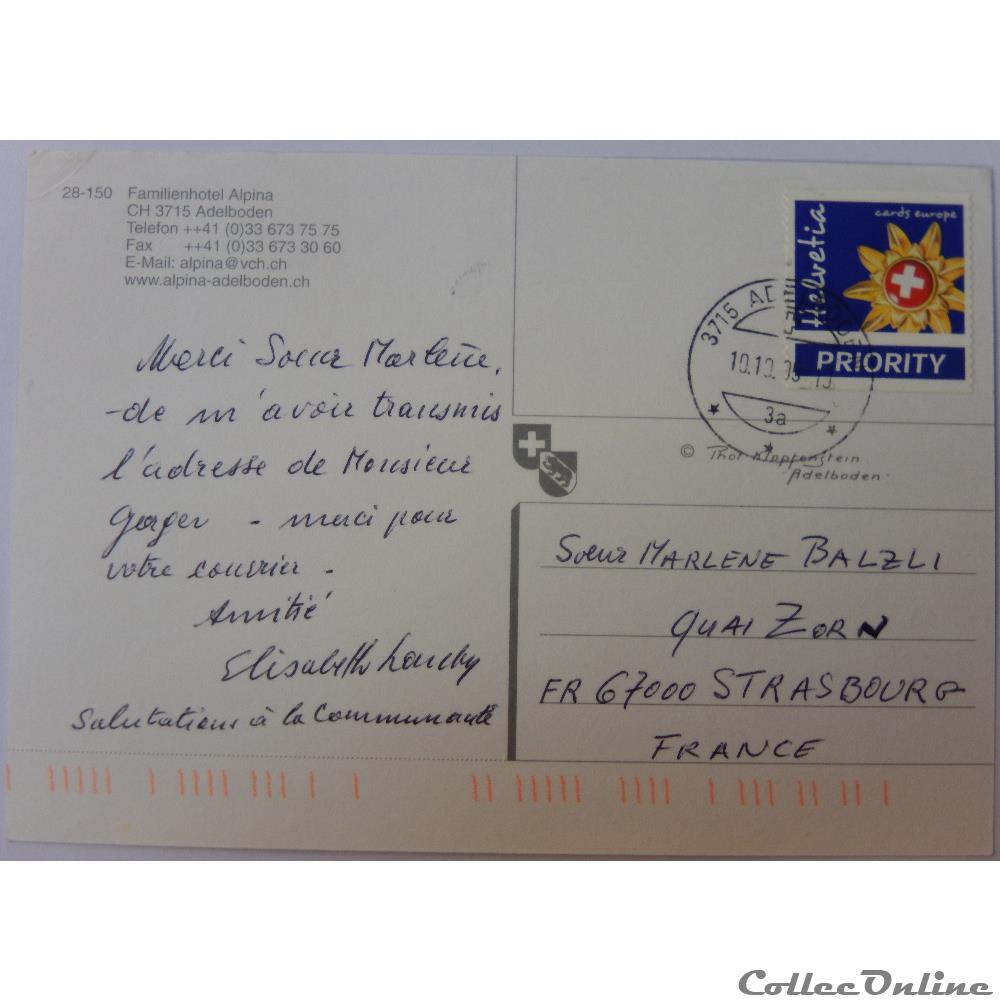 28-150 Familienhotel Alpina
CH 3715 Adelboden
Telefon ++41 (0)33 673 75 75
Fax ++41 (0) 33 673 30 60
E-Mail: alpina@vch.ch
www.alpina-adelboden.ch
Merci Soeur Marlène,
-de m'avoir transmis
l'adresse de Monsieur
- merci pour
votre courrier -
Amitié
Elisabeth
Salutations à la Communauté
Helvetia
cards europe
PRIORITY
3715
10.10.
3a
© Klopfenstein
Adelboden
Soeur MARLENE BALZLI
QUAI ZORN
FR 67000 STRASBOURG
FRANCE
CollecOnline